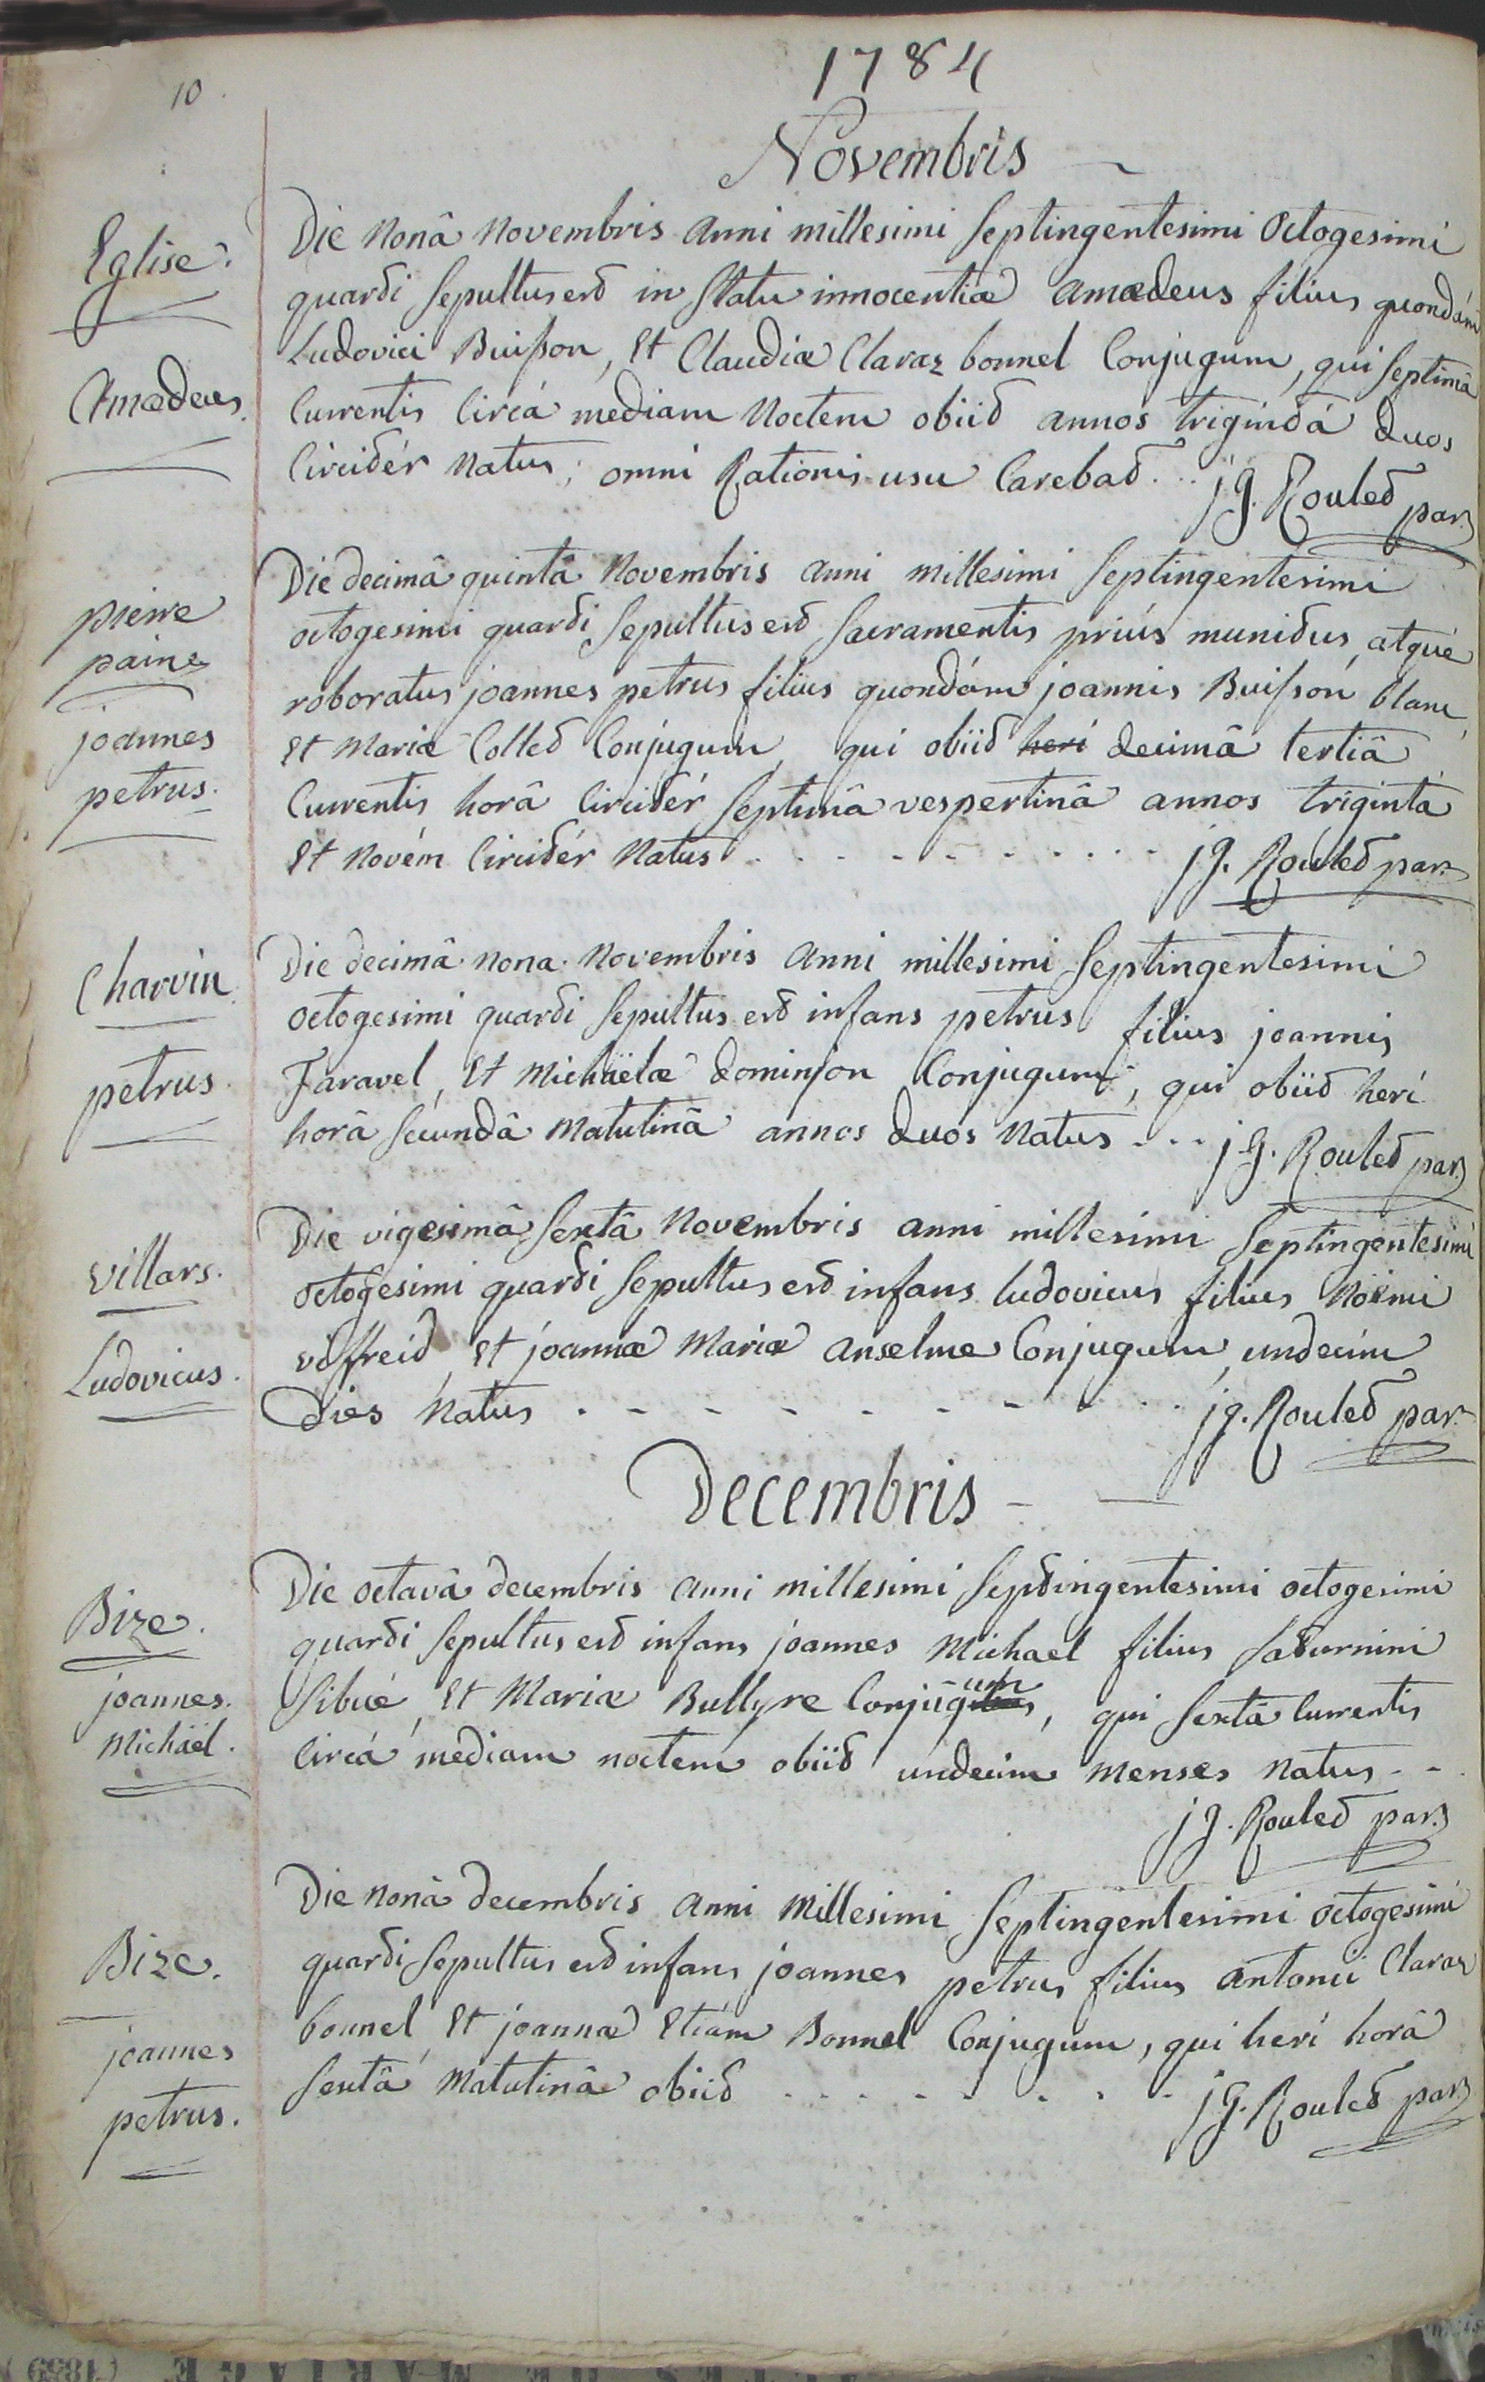 10
1784
Novembris
Eglise.
Amædeus.
Die nonâ novembris anni millesimi septingentesimi octogesimi
quarti sepultus est in statu innocentiæ amædeus filius quondàm
Ludovici Buisson, et Claudiæ Claraz bonnel Conjugum, qui septimâ
Currentis Circà mediam noctem obiit annos trigintà duos
Circitèr natus; omni Rationis usu Carebat. .. jg. Roulet par.
pierre
paine
joannes
petrus.
Die decimâ quintâ novembris anni millesimi septingentesimi
octogesimi quarti sepultus est sacramentis priùs munitus, atquè
roboratus joannes petrus filius quondàm joannis Buisson blanc
et Mariæ Collet Conjugum, qui obiit heri decimâ tertiâ
Currentis horâ Circitèr septimâ vespertinâ annos trigintà
et novèm Circitèr natus . . . . . . . . . . jg. Roulet par.
Charvin
petrus.
Die decimâ nona novembris anni millesimi septingentesimi
octogesimi quarti sepultus est infans petrus filius joannis
Faravel, et Michaëlæ dominjon Conjugum, qui obiit herì
horâ secundâ matutinâ annos duos natus . . . jg. Roulet par.
villars.
Ludovicus.
Die vigesimâ sextâ novembris anni millesimi septingentesimi
octogesimi quarti sepultus est infans ludovicus filius noëmi
voffreid, et joannæ Mariæ anselme Conjugum, undecim
dies natus . - - - - - - - - . . jg. Roulet par.
Decembris
Bize.
joannes.
Michaël.
Die octavâ decembris anni millesimi septingentesimi octogesimi
quarti sepultus est infans joannes Michael filius saturnini
Sibué, et Mariæ Bullyre Conjugum, qui sextâ Currentis
Circà mediam noctem obiit undecim menses natus - -
jg. Roulet par.
Bize.
joannes
petrus.
Die nonâ decembris anni millesimi septingentesimi octogesimi
quarti sepultus est infans joannes petrus filius antonii Claraz
bonnel, et joannæ etiàm Bonnel Conjugum, qui herì horâ
sextâ matutinâ obiit . . . . . . . . . jg. Roulet par.